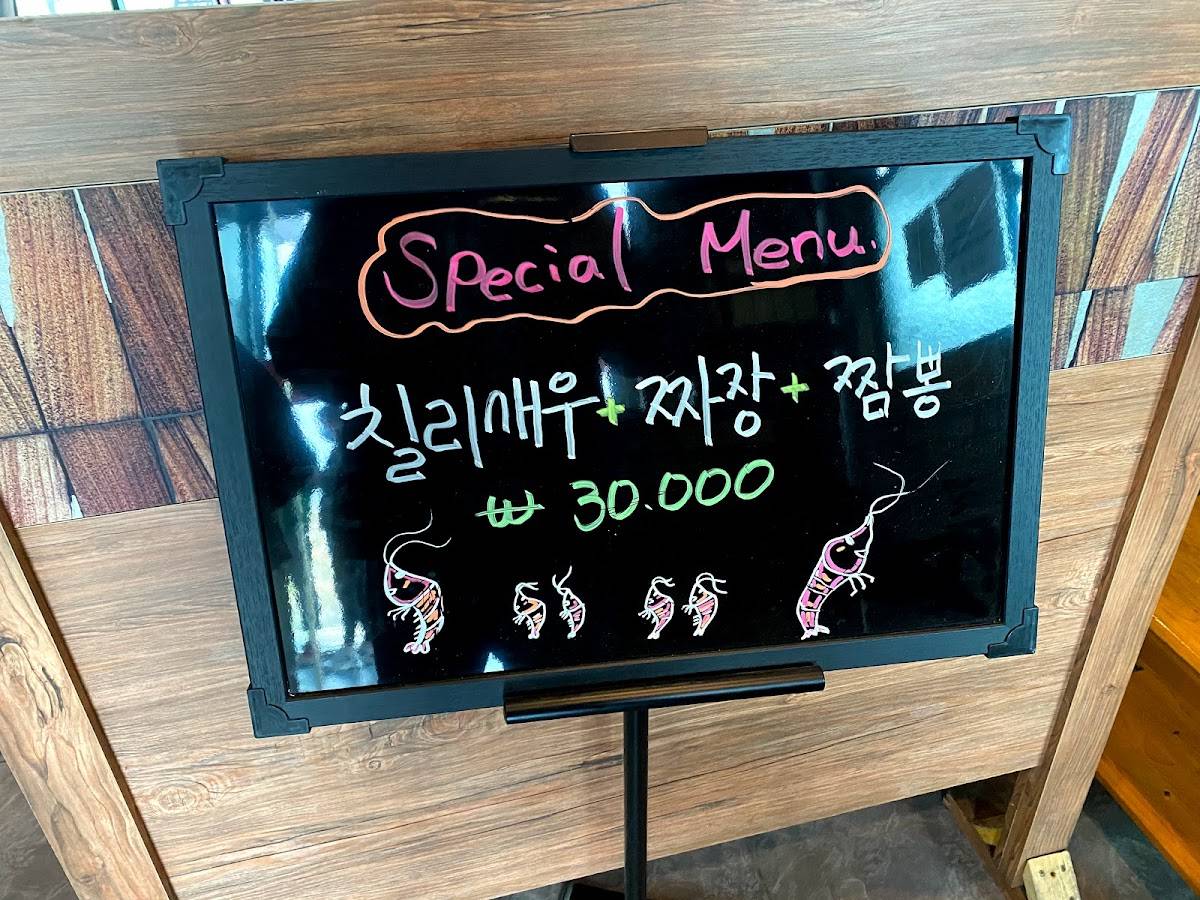 Special Menu.
칠리새우+짜장+짬뽕
₩ 30.000